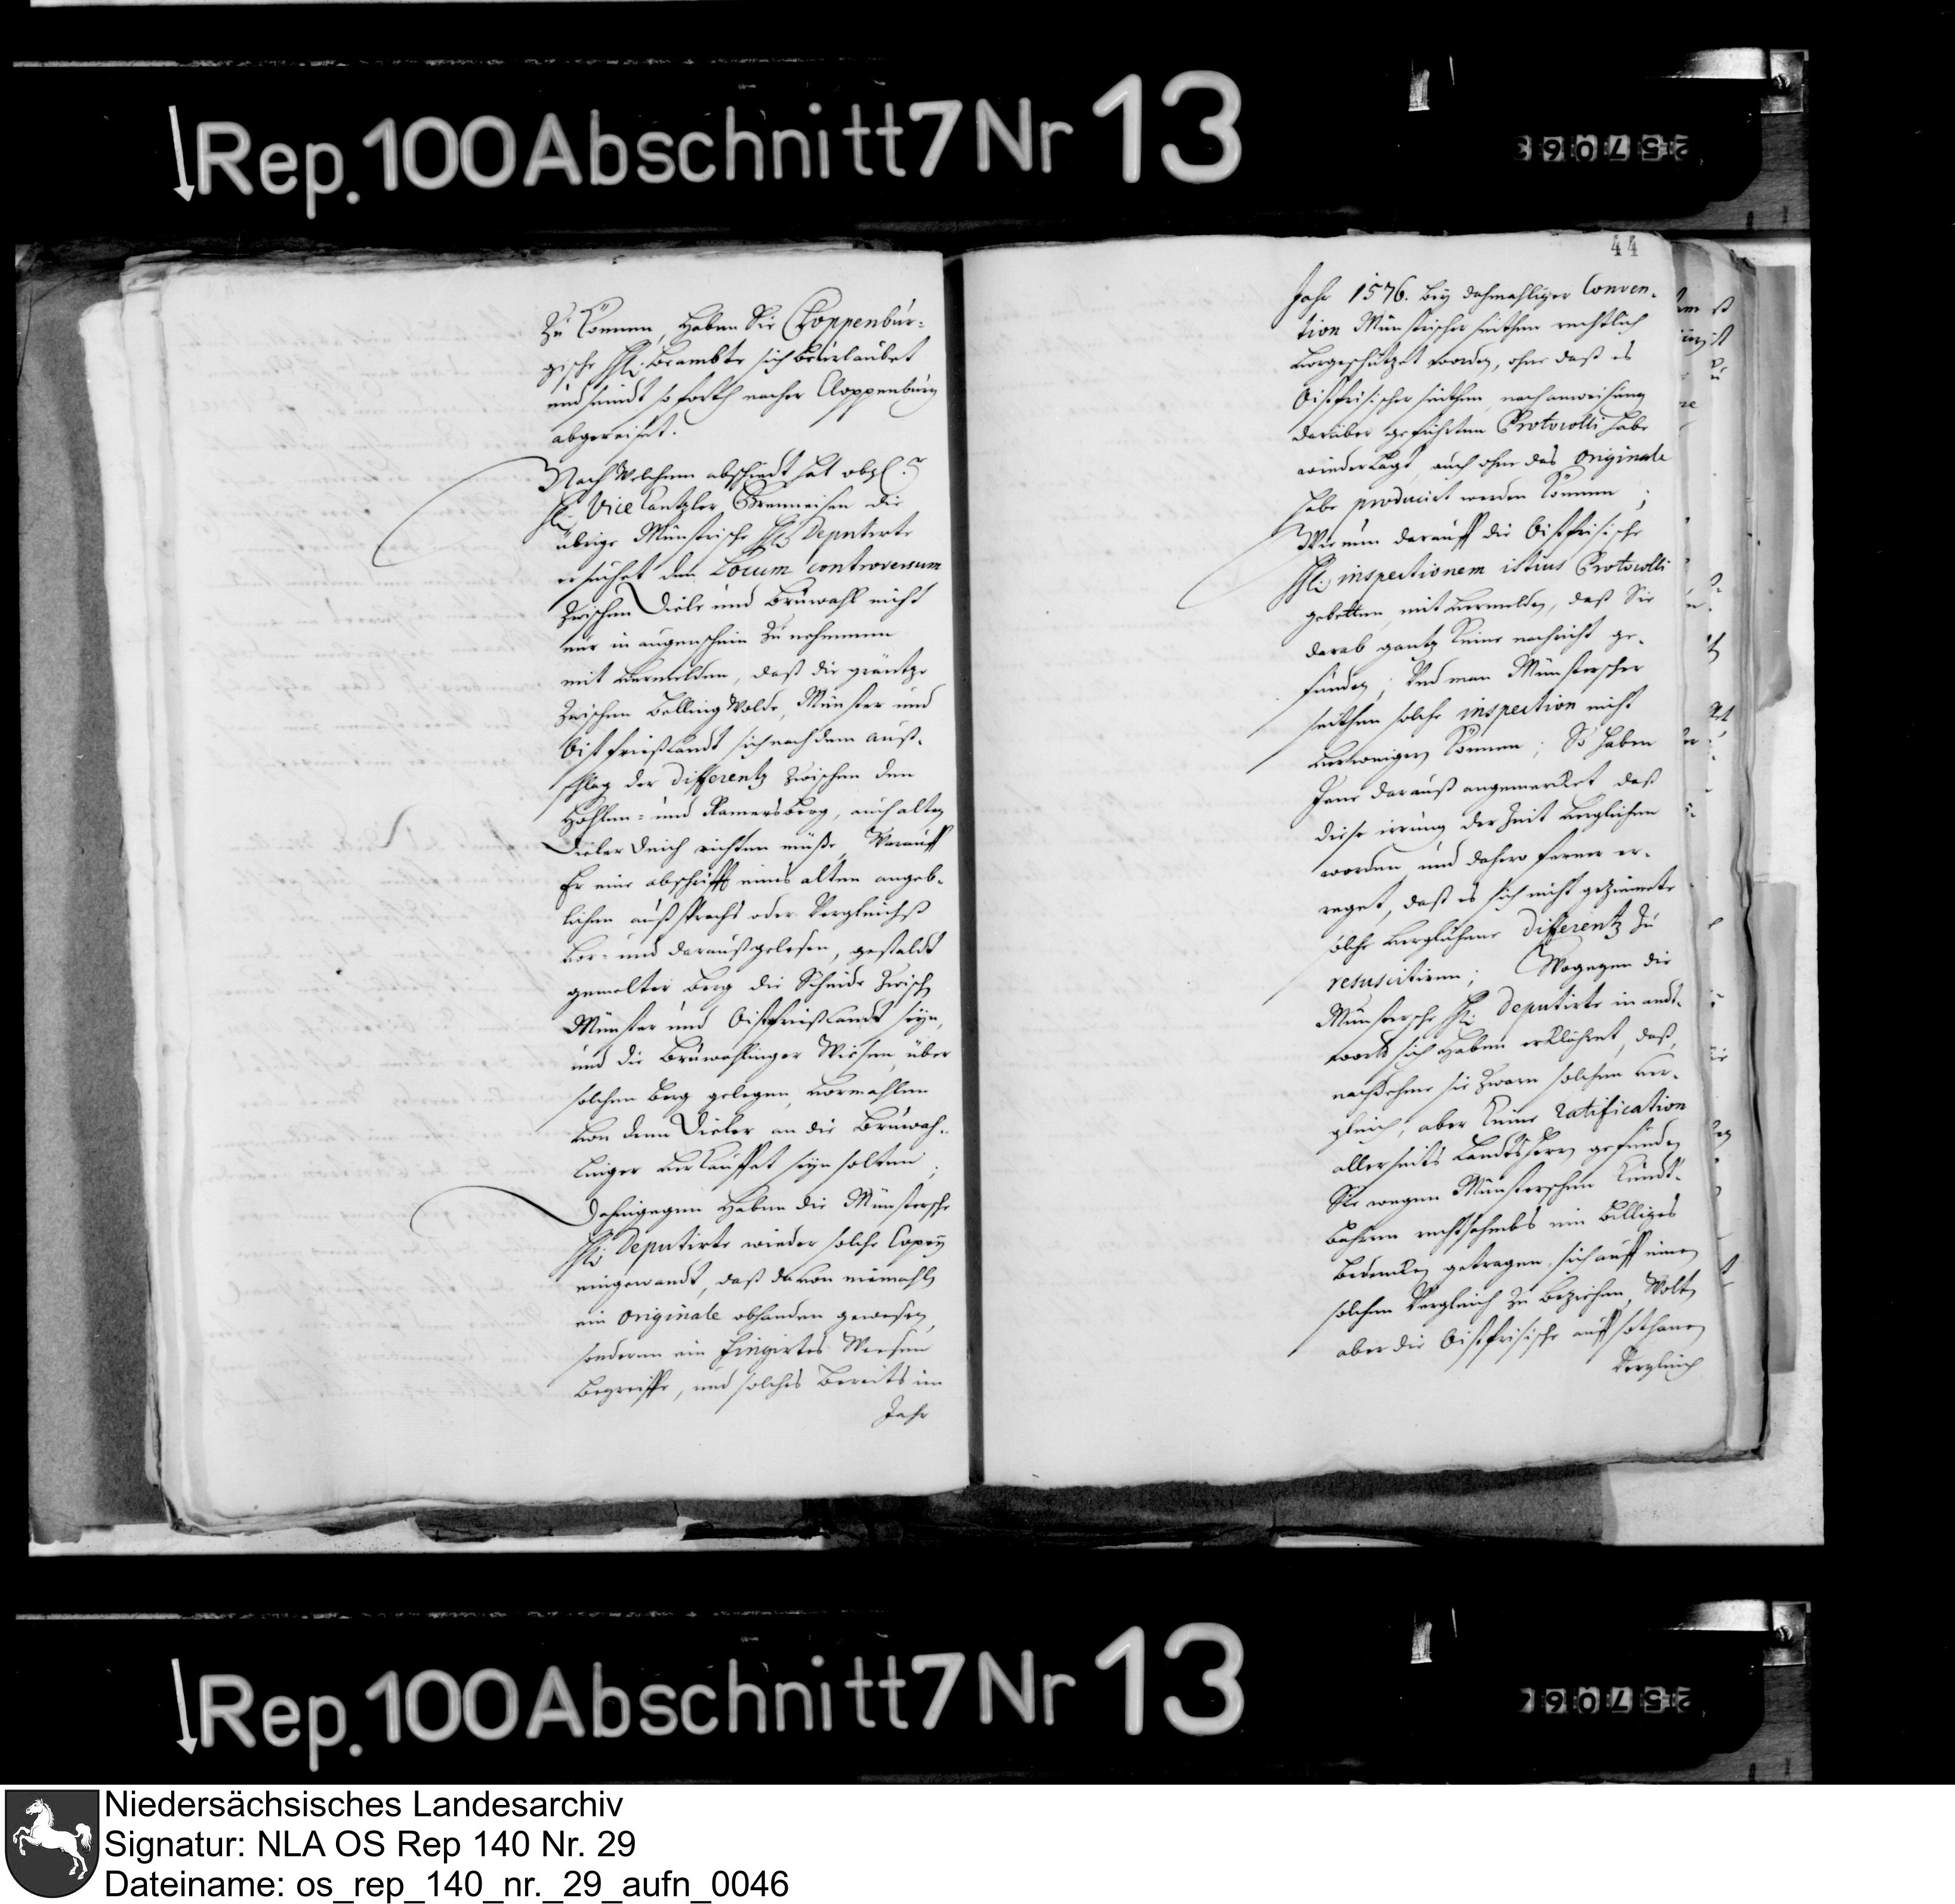 Rep. 100 Abschnitt 7 Nr 13
zu können, haben die Cloppenbur-
gische H: Beambte sich beurlaubet
und seindt so forth nacher Cloppenburg
abgereiset.
Nach welchem abschiedt hat obgl.
H: Vice Cantzler Brenneisen die
übrige Münstrische H: Deputirte
ersuchet den Locum controversum
zwischen Diele und Brüwahl nicht
nur in augenschein zu nehmmen
mit vermelden, daß die gräntze
zwischen Belling Wolde, Münster und
Oistfrießlandt sich nach dem auß-
schlag der differentz zwischen den
Höhlen- und Ramersberg, auch alten
Dieler Deich richten müße, Worauff
Er eine abschrifft eines alten angeb-
lichen außspruchs oder Vergleichß
vor- und darauß gelesen, gestaldt
gemelter berg die Scheide zwisch
Münster und Oistfrießlandt seyn,
und die Brüwahlinger Wiesen, über
solchen berg gelegen, vormahlen
von denn Dieler an die Brüwah-
linger verkauffet seyn solten;
Dahingegen haben die Münstersche
H: Deputirte wieder solche Copey
eingewandt, daß davon niemahlß
ein originale obhanden gewesen,
sonderen ein fingirtes Weesen
begreiffe, und solches bereits im
Jahr
44
Jahr 1576. bey dahmahliger Conven-
tion Münstrischer seithen rechtlich
vorgeschützet worden, ohne daß es
Oistfrisischer seithen, nach anweisung
darüber geführten Protocolli habe
wiederlagt, auch ohne das originale
habe producirt werden können;
Wie nun darauff die Oistfrisische
H: inspectionem istius Protocolli
gebetten, mit vermelden, daß Sie
darab gantz keine nachricht ge-
funden; Und man Münsterscher
seithen solche inspection nicht
verweigeren können; So haben
Jene darauß angemercket, daß
diese irrung der Zeit verglichen
worden, und dahero ferner er-
reget, daß es sich nicht gezimmete
solche verglichene differentz zu
resuscitiren; Wogegen die
Münstersche H: Deputirte in andt-
wordt sich haben erklähret, daß,
nachdehme sie zwarn solchen ver-
gleich, aber keine ratification
allerseits Landtsherrn gefunden
Sie wegen Münsterschen kundt-
bahren rechtsahmbs ein billiges
bedencken getragen, sich auff einen
solchen Vergleich zu beziehen, Wolten
aber die Oistfrisische auff sothanen
Vergleich
Rep. 100 Abschnitt 7 Nr 13
Niedersächsisches Landesarchiv
Signatur: NLA OS Rep 140 Nr. 29
Dateiname: os_rep_140_nr._29_aufn_0046